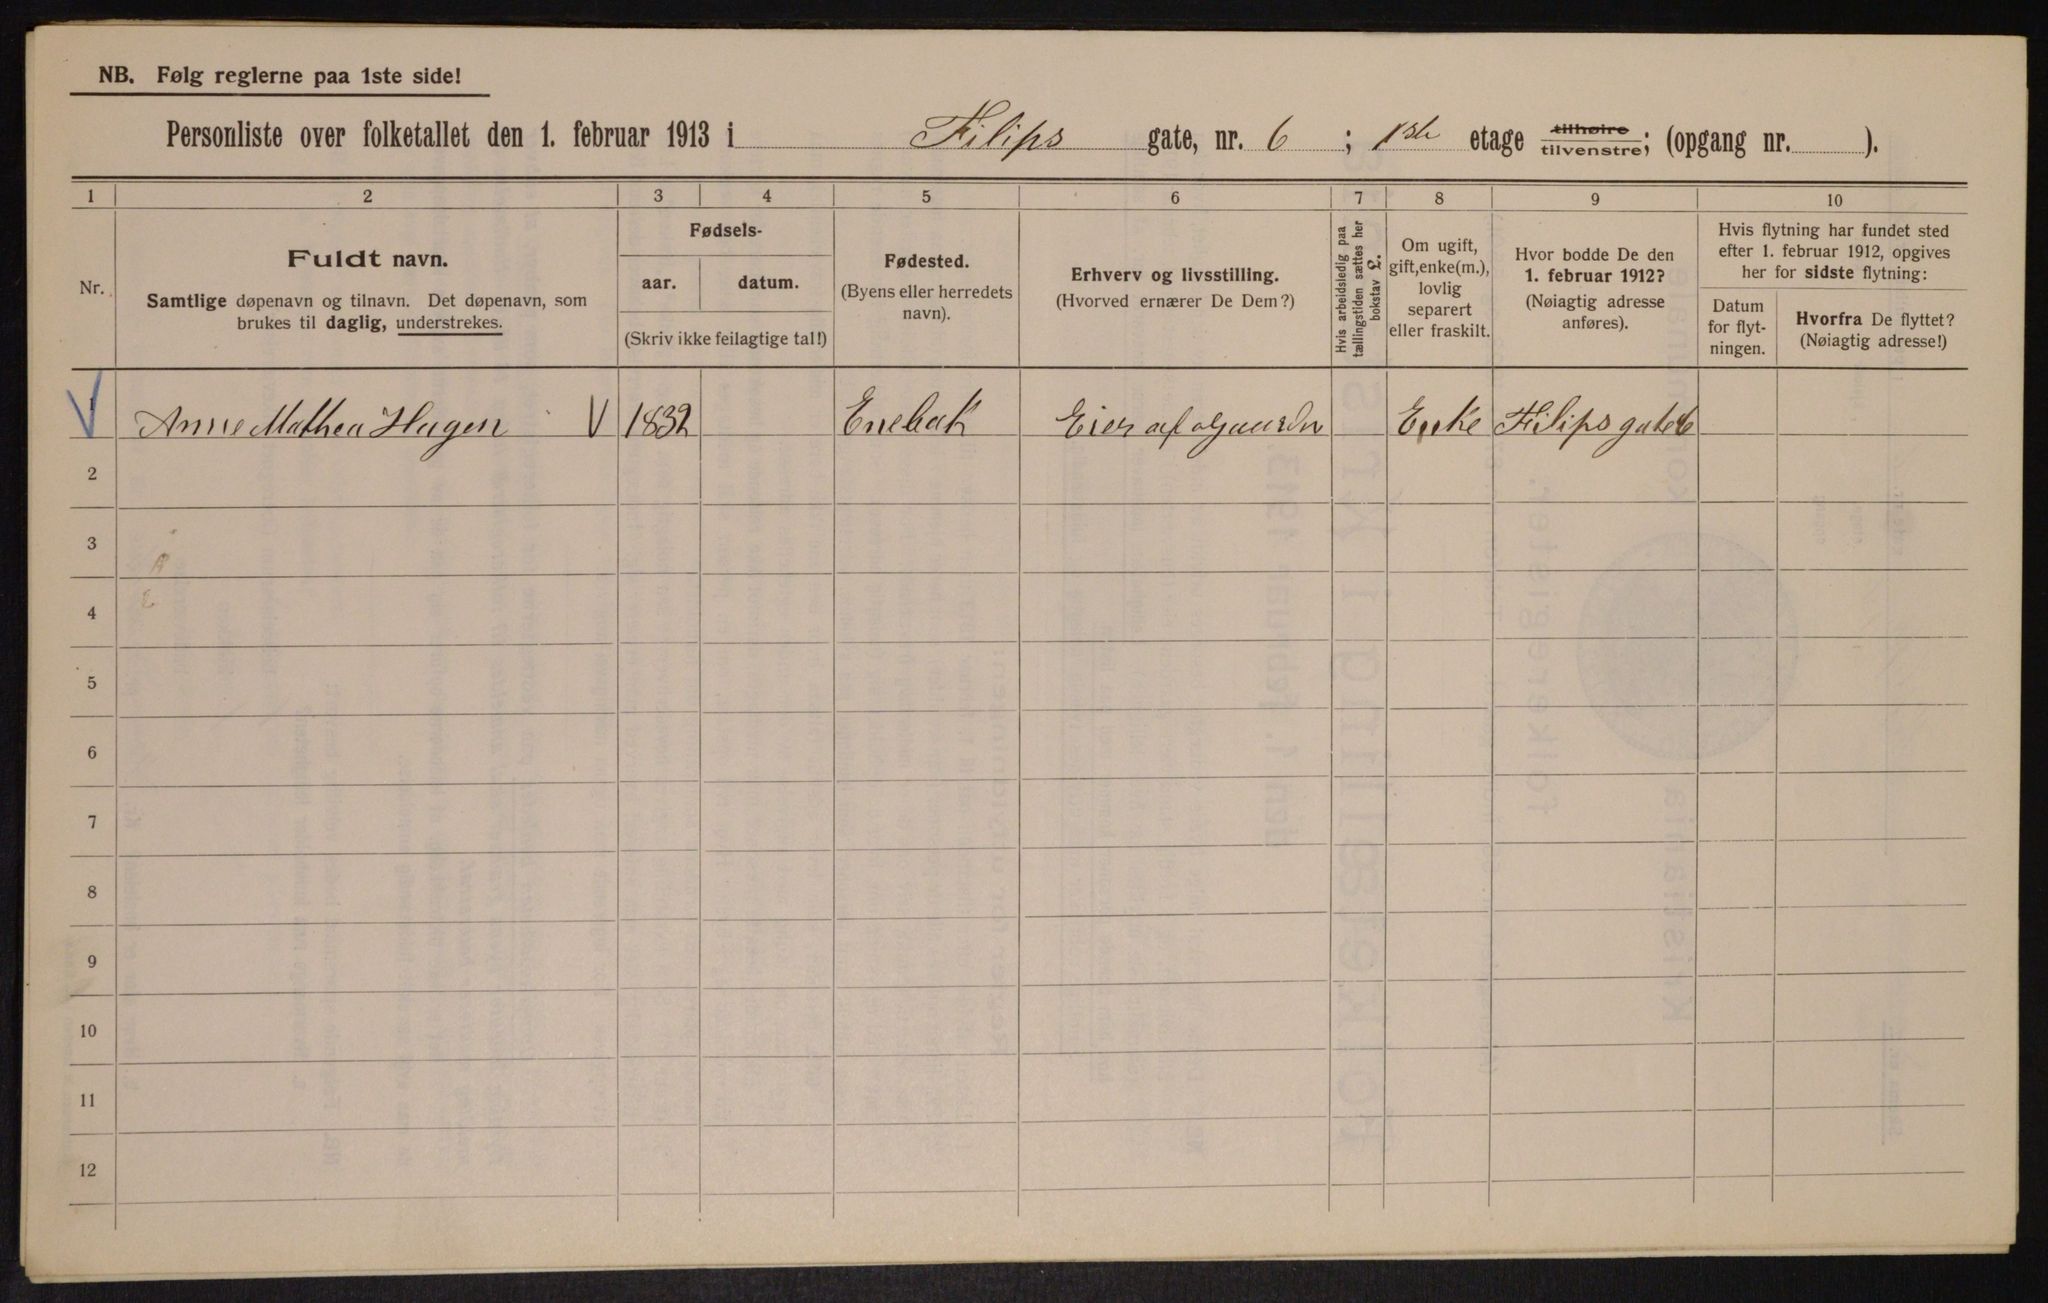 NB. Følg reglerne paa 1ste side!
Personliste over folketallet den 1. februar 1913 i Filips gate, nr. 6 ; 1ste etage tilhøire tilvenstre; (opgang nr. ).
1 2 3 4 5 6 7 8 9 10
Nr.
Fuldt navn.
Samtlige døpenavn og tilnavn. Det døpenavn, som
brukes til daglig, understrekes.
Fødsels-
aar. datum.
(Skriv ikke feilagtige tal!)
Fødested.
(Byens eller herredets
navn).
Erhverv og livsstilling.
(Hvorved ernærer De Dem?)
Hvis arbeidsledig paa
tællingstiden sættes her
bokstav L.
Om ugift,
gift, enke(m.),
lovlig
separert
eller fraskilt.
Hvor bodde De den
1. februar 1912?
(Nøiagtig adresse
anføres).
Hvis flytning har fundet sted
efter 1. februar 1912, opgives
her for sidste flytning:
Datum
for flyt-
ningen.
Hvorfra De flyttet?
(Nøiagtig adresse!)
1 Anne Mathea Hagen 1832 Enebak Eier af Gaarden Enke Filips gate 6
2
3
4
5
6
7
8
9
10
11
12